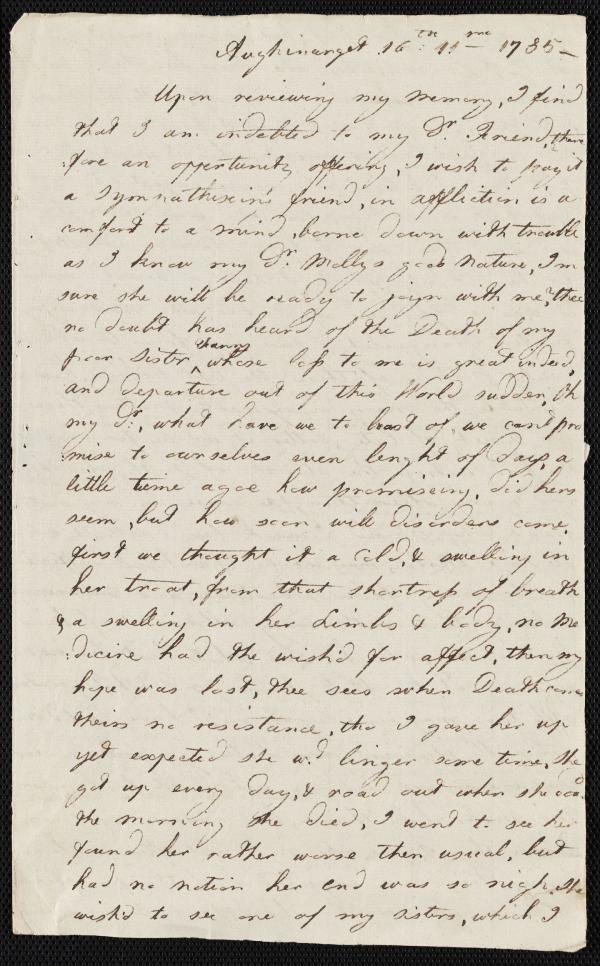 Aughinarget 16th: 11mo 1785-
Upon reviewing my memory, I find
that I am indebted to my Dr. Friend, there
:fore an oppertunity offering, I wish to pay it
a Symnathisein's friend, in affliction is a
comfort to a mind, borne down with trouble
as I know my Dr. Mollys good Nature, I'm
sure she will be ready to joyn with me, thee
no doubt has heard of the Death of my
poor sister whose loss to me is great indeed,
and departure out of this World sudden, Oh
my Dr:, what have we to boast of, we cant pro
:mise to ourselves even lenght of Days, a
little time agoe how promiseing, did hers
seem, but how soon will disorders come,
first we thought it a Cold, & swelling in
her troat, from that shortness of breath
& a swelling in her Limbs & body, no Me
:dicine had the wish'd for affect, then my
hope was lost, thee sees when Death comes
theirs no resistance, tho I gave her up
yet expected she wd. linger some time, she
got up every Day, & road out when she cod.
the morning she died, I went to see her
found her rather worse then usual, but
had no notion her end was so nigh, she
wish'd to see one of my sisters, which I